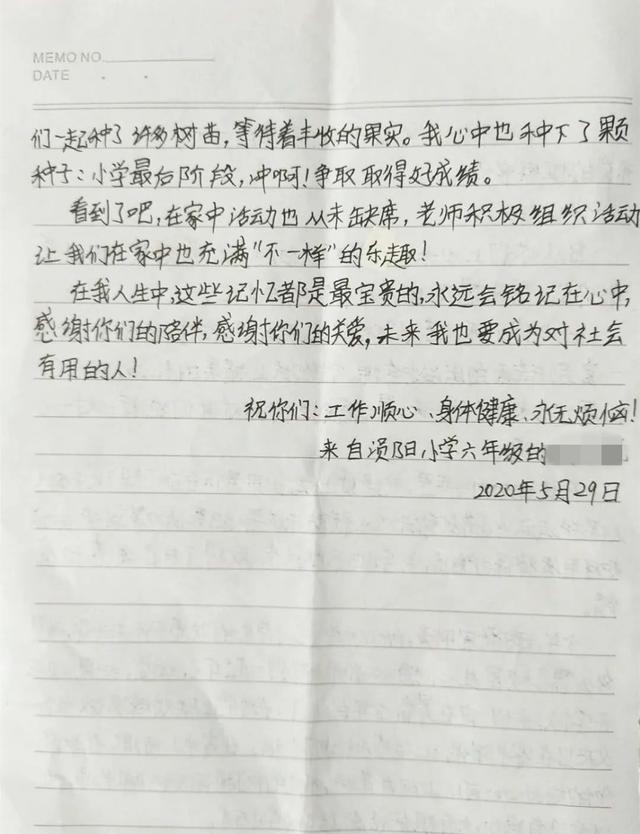 MEMO NO.
DATE . .
们一起种了许多树苗，等待着丰收的果实。我心中也种下了颗
种子：小学最后阶段，冲啊！争取取得好成绩。
看到了吧，在家中活动也从未缺席，老师积极组织活动
让我们在家中也充满“不一样”的乐趣！
在我人生中，这些记忆都是最宝贵的，永远会铭记在心中，
感谢你们的陪伴，感谢你们的关爱，未来我也要成为对社会
有用的人！
祝你们：工作顺心、身体健康、永无烦恼！
来自涢阳小学六年级的
2020年5月29日